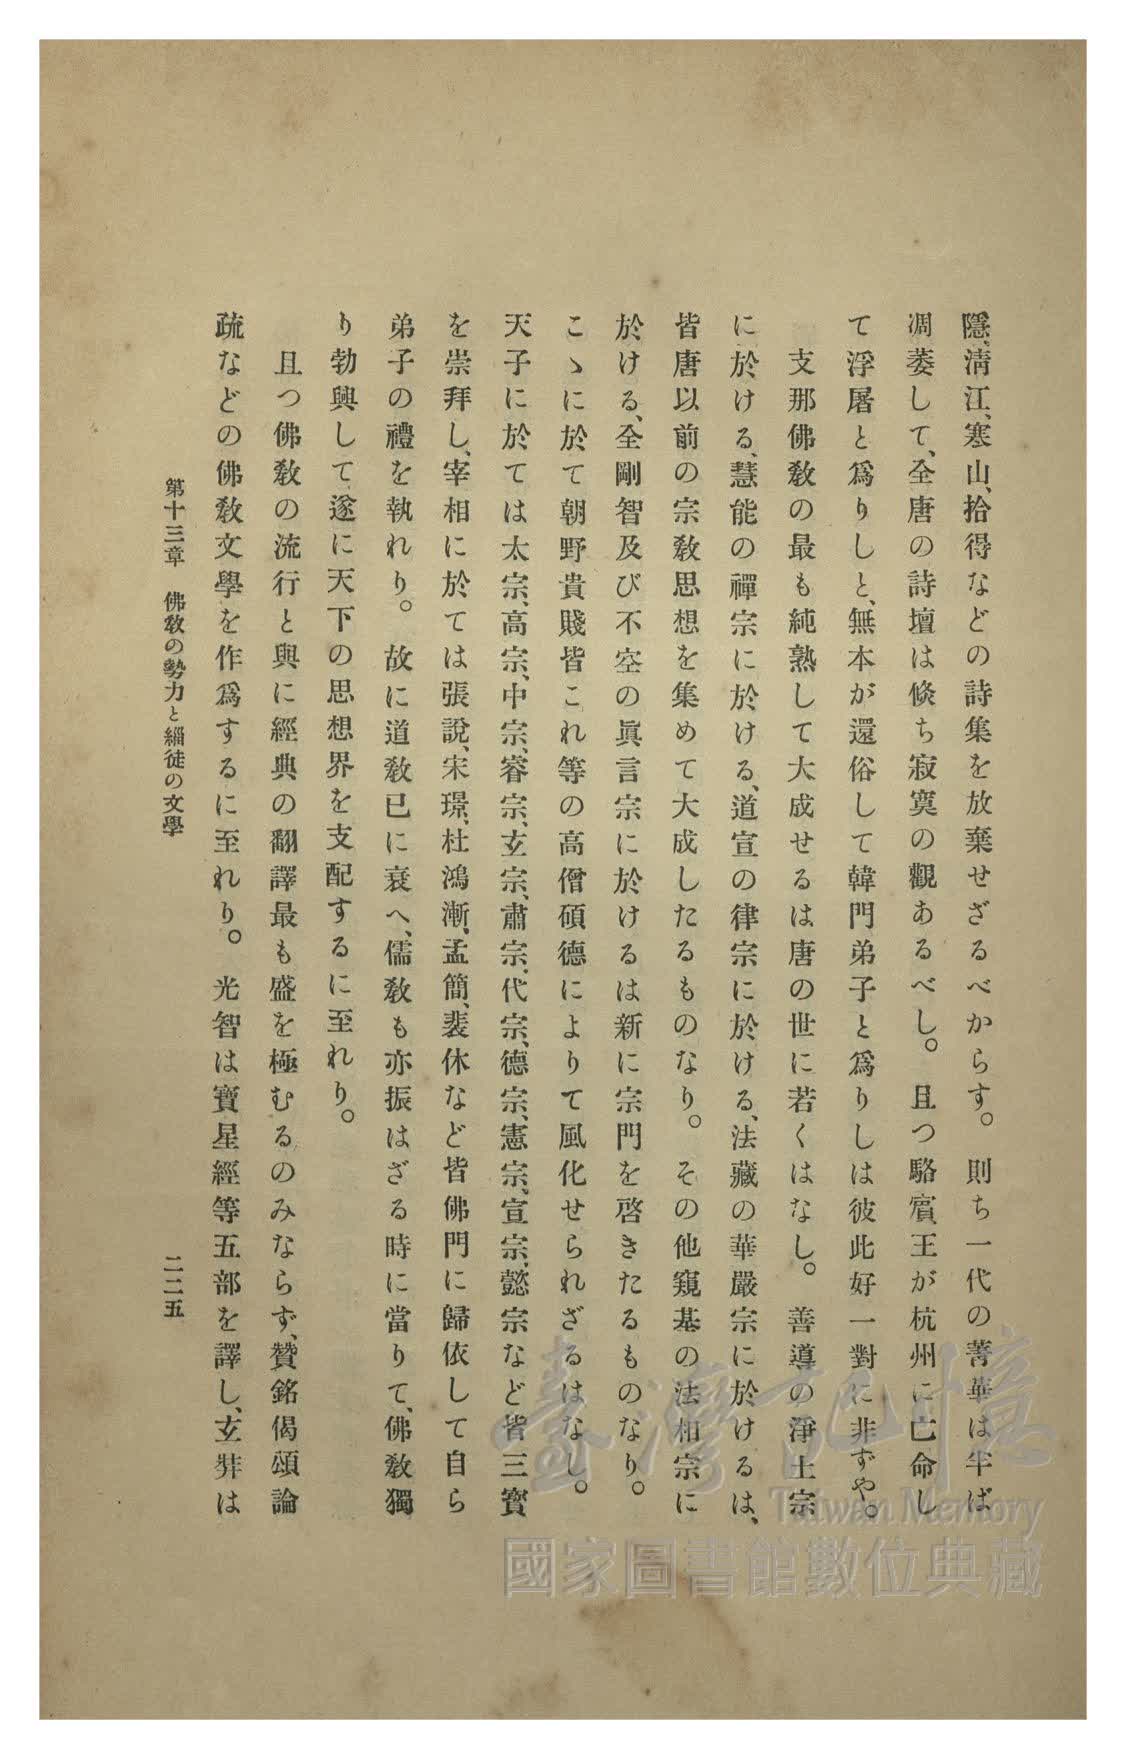 隱、淸江、寒山、拾得などの詩集を放棄せざるべからす。則ち一代の菁華は半ば
凋萎して、全唐の詩壇は倏ち寂寞の觀あるべし。且つ駱賓王が杭州に亡命し
て浮屠と爲りしと、無本が還俗して韓門弟子と爲りしは彼此好一對に非ずや。
支那佛敎の最も純熟して大成せるは唐の世に若くはなし。善導の淨土宗
に於ける、慧能の禪宗に於ける、道宣の律宗に於ける、法藏の華嚴宗に於けるは、
皆唐以前の宗敎思想を集めて大成したるものなり。その他窺基の法相宗に
於ける、全剛智及び不空の眞言宗に於けるは新に宗門を啓きたるものなり。
こゝに於て朝野貴賤皆これ等の高僧碩德によりて風化せられざるはなし。
天子に於ては太宗、高宗、中宗、睿宗、玄宗、肅宗、代宗、德宗、憲宗、宣宗、懿宗など皆三寳
を崇拜し、宰相に於ては張說、宋璟、杜鴻漸、孟簡、裴休など皆佛門に歸依して自ら
弟子の禮を執れり。故に道敎已に衰へ、儒敎も亦振はざる時に當りて、佛敎獨
り勃興して遂に天下の思想界を支配するに至れり。
且つ佛敎の流行と與に經典の翻譯最も盛を極むるのみならず、贊銘偈頌論
疏などの佛敎文學を作爲するに至れり。光智は寶星經等五部を譯し、玄奘は
第十三章　佛敎の勢力と緇徒の文學
二二五
臺灣記憶
Taiwan Memory
國家圖書館數位典藏